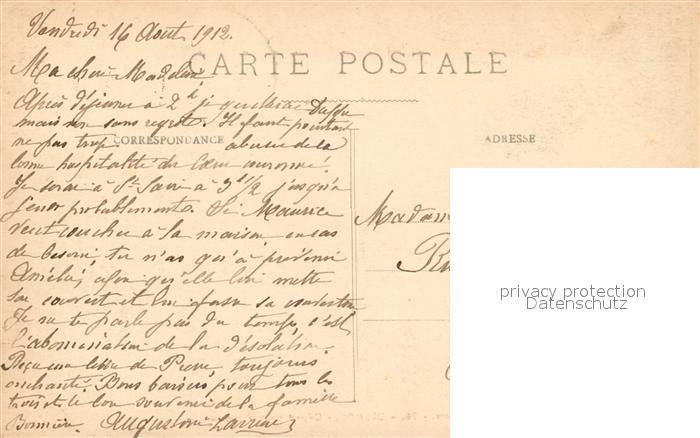 Vendredi 16 Aout 1912.
CARTE POSTALE
Ma chère Madeleine,
Après déjeuner à 2h je quitterai
mais non sans regrets. Il faut pourtant
ne pas trop abuser de la
CORRESPONDANCE
ADRESSE
bonne hospitalité du
Je serai à St à 3h 1/2 jusqu'à
probablement. Si Maurice
veut coucher à la maison, en cas
de besoin, tu n'as qu'à prévenir
Amélie, afin qu'elle lui mette
son couvert et lui fasse sa couverture
Je ne te parle pas du temps, c'est
l'abomination de la désolation.
Reçu une lettre de Pierre, toujours
enchanté. Bons baisers pour tous les
trois et le bon souvenir de la famille
Augustine
Madame
privacy protection
Datenschutz